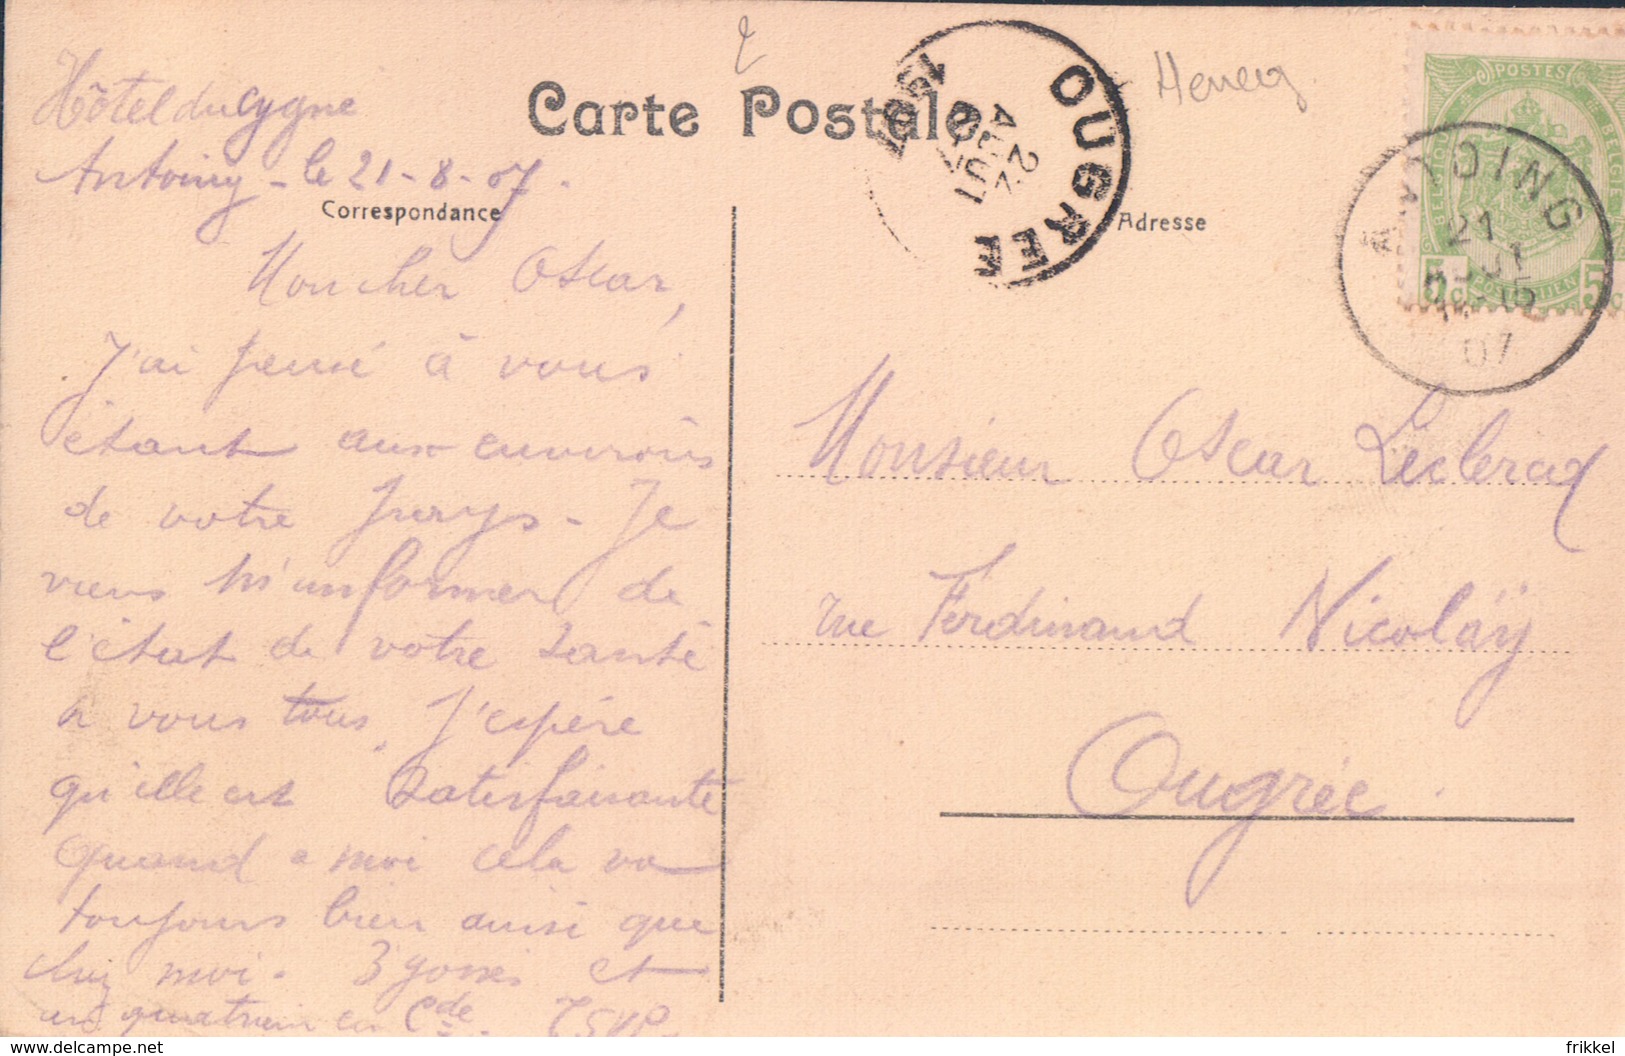 Henery
Carte Postale
Hôtel du Cygne
Antoing - le 21-8-07.
Correspondance
Adresse
OUGREE
22
AOUT
1907
ANTOING
21
AOUT
07
POSTES
BELGIQUE
BELGIE
POSTERIJEN
5 c 5 c
Mon cher Oscar,
J'ai pensé à vous
étant aux environs
de votre pays - Je
viens m'informer de
l'état de votre santé
a vous tous. J'espère
qu'elle est satisfaisante
quand a moi cela va
toujours bien ainsi que
chez moi. 3 gosses et
un quatrième en Cde. TSVP
Monsieur Oscar Leclercq
rue Ferdinand Nicolaÿ
Ougrée.
frikkel
delcampe.net